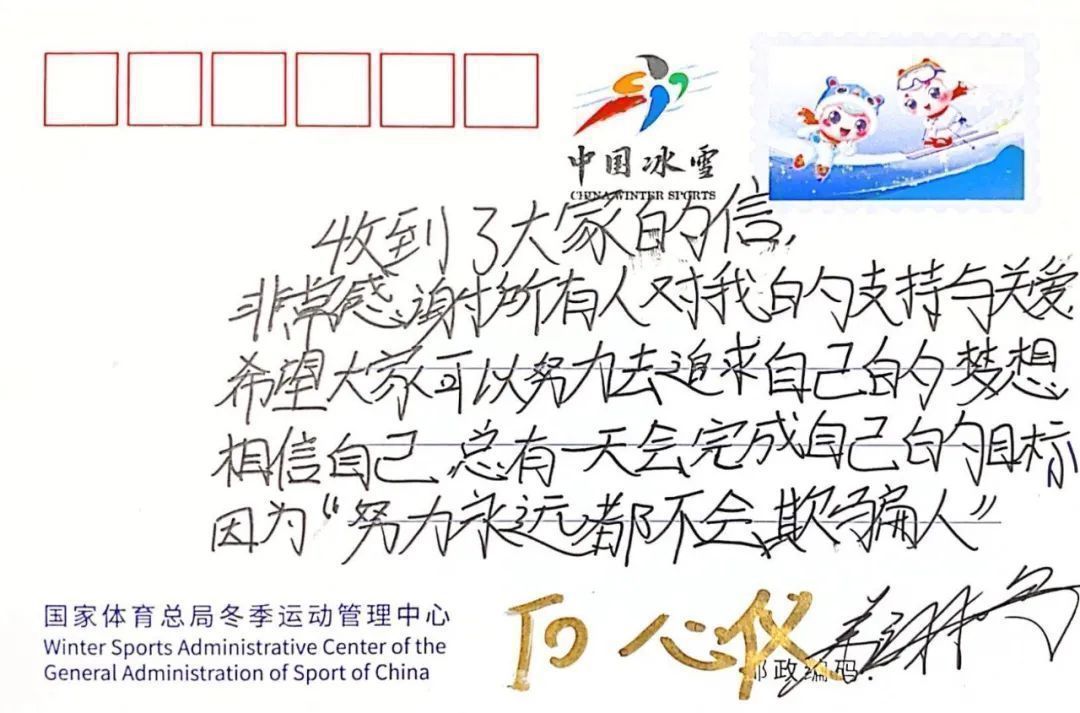 中国冰雪
CHINA WINTER SPORTS
收到了大家的信,
非常感谢所有人对我的支持与关爱
希望大家可以努力去追求自己的梦想
相信自己,总有一天会完成自己的目标
因为“努力永远都不会欺骗人”
国家体育总局冬季运动管理中心
Winter Sports Administrative Center of the
General Administration of Sport of China
心仪
邮政编码: